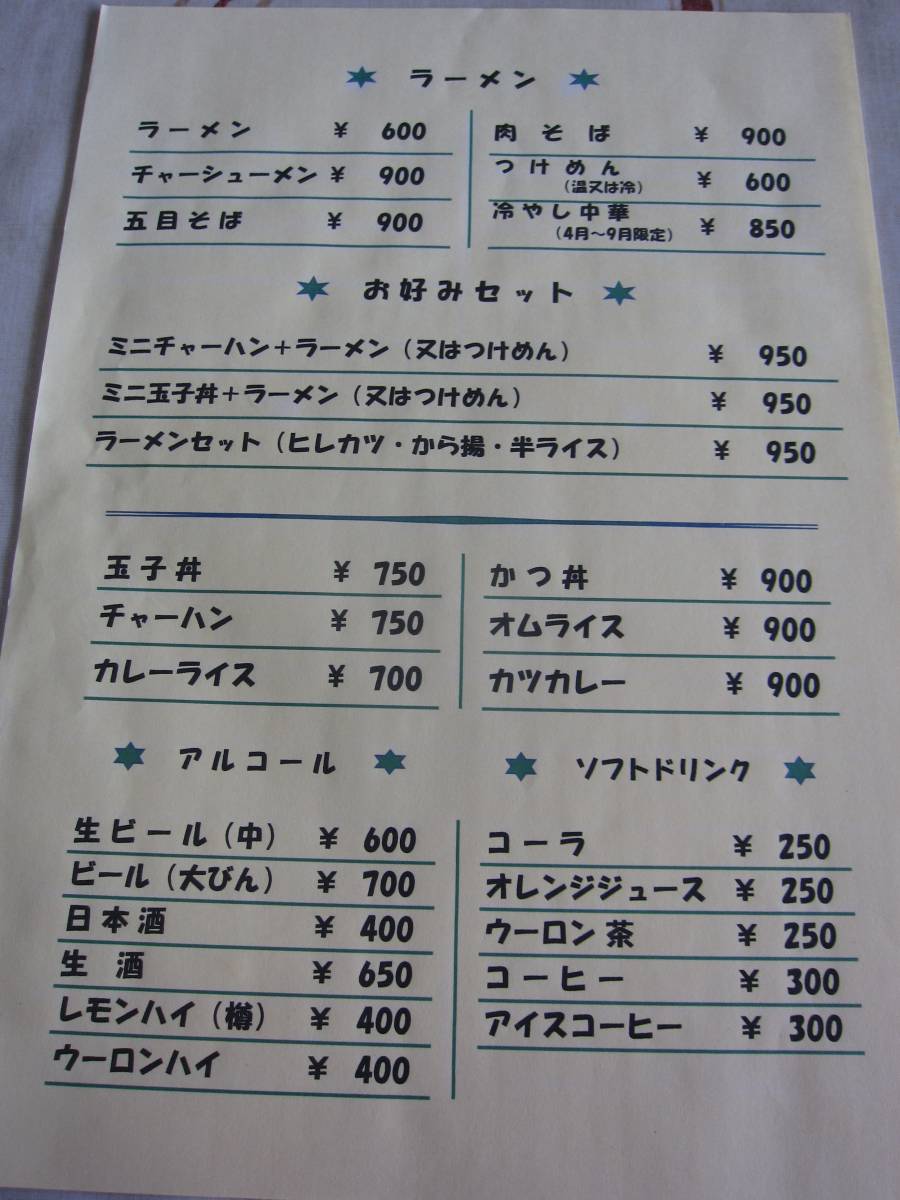 ラーメン
ラーメン ￥ 600
チャーシューメン ￥ 900
五目そば ￥ 900
肉そば ￥ 900
つけめん
（温又は冷） ￥ 600
冷やし中華
（4月～9月限定） ￥ 850
お好みセット
ミニチャーハン＋ラーメン（又はつけめん） ￥ 950
ミニ玉子丼＋ラーメン（又はつけめん） ￥ 950
ラーメンセット（ヒレカツ・から揚・半ライス） ￥ 950
玉子丼 ￥ 750
チャーハン ￥ 750
カレーライス ￥ 700
かつ丼 ￥ 900
オムライス ￥ 900
カツカレー ￥ 900
アルコール
生ビール（中） ￥ 600
ビール（大びん） ￥ 700
日本酒 ￥ 400
生酒 ￥ 650
レモンハイ（樽） ￥ 400
ウーロンハイ ￥ 400
ソフトドリンク
コーラ ￥ 250
オレンジジュース ￥ 250
ウーロン茶 ￥ 250
コーヒー ￥ 300
アイスコーヒー ￥ 300